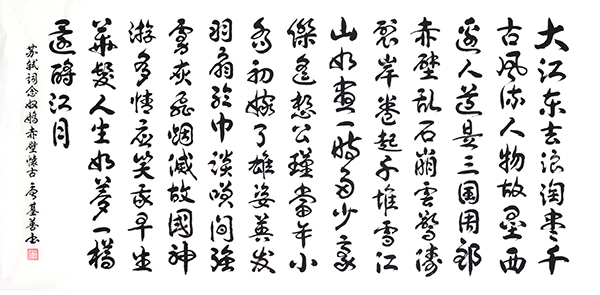 大江东去浪淘尽千
古风流人物故垒西
边人道是三国周郎
赤壁乱石崩雲驚涛
裂岸卷起千堆雪江
山如畫一时多少豪
傑遥想公瑾當年小
乔初嫁了雄姿英发
羽扇纶巾談笑间強
虏灰飛烟滅故國神
游多情应笑我早生
華髮人生如夢一樽
還酹江月
苏轼词念奴娇赤壁怀古 基善书